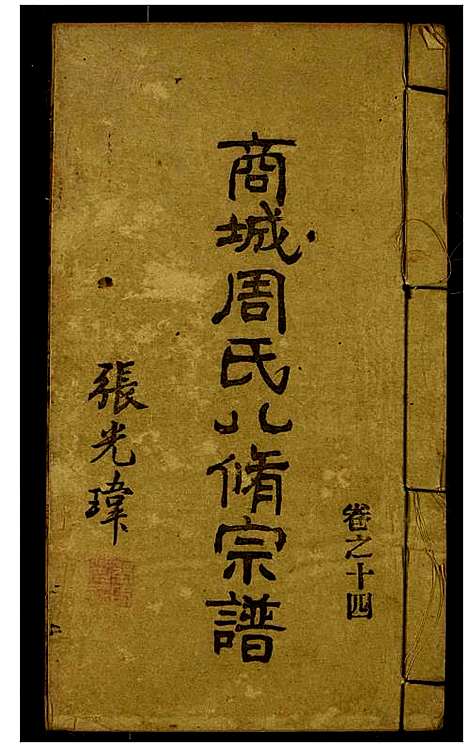 卷之十四
商城周氏八脩宗譜
張光瑋